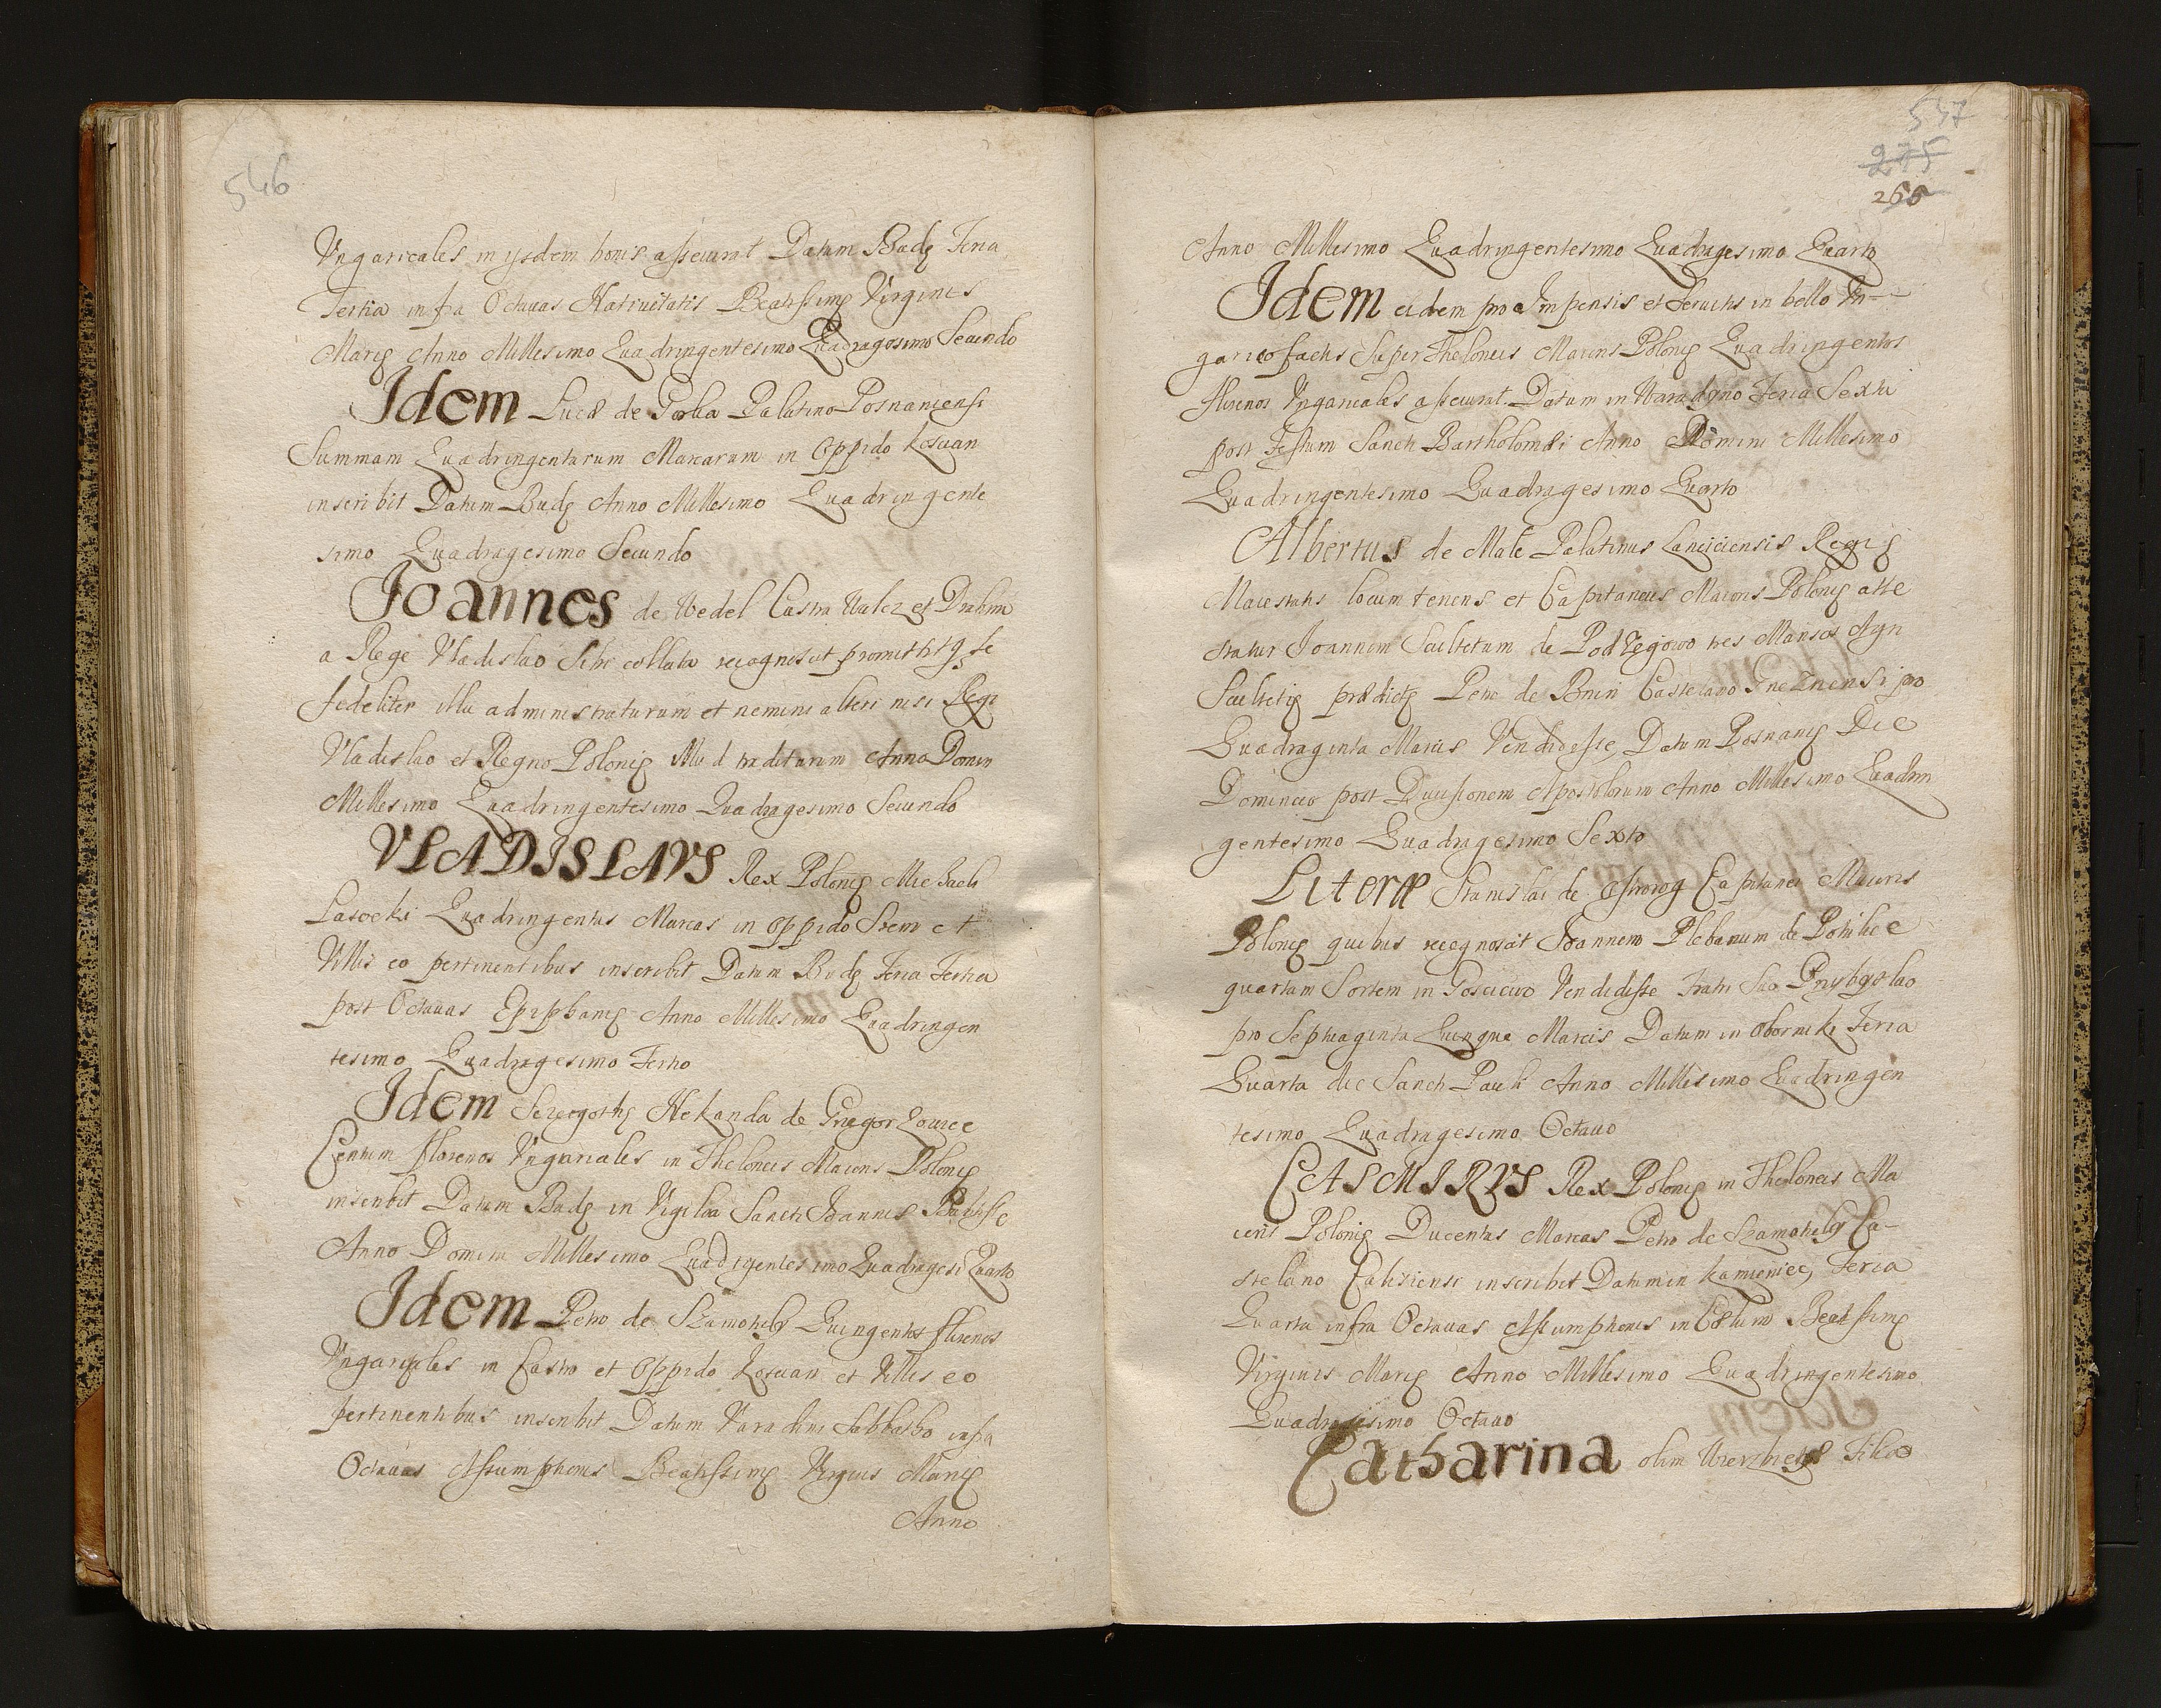 546
Vngaricales in ijsdem bonis asseurat Datum Budę Feria
Tertia infra Octauas Natiuitatis Beatissimę Virginis
Marię Anno Millesimo Quadringentesimo Quadragesimo Secundo
Idem Lucæ de Gorka Palatino Posnaniensi
Summam Quadringentarum Marcarum in Oppido Koscian
inscribit Datum Budę Anno Millesimo Quadringente
simo Quadragesimo Secundo
Joannes de Wedel Castra Walcz et Drahim
a Rege Vladislao Sibi collata recognoscit promittitq se
fideliter illa administraturum et nemini alteri nisi Regi
Vladislao et Regno Polonię illud traditurum Anno Domini
Millesimo Quadringentesimo Quadragesimo Secundo
VLADISLAVS Rex Polonię Michaeli
Lasocki Quadringentas Marcas in Oppido Srem et
Villis eo pertinentibus inscribit Datum Budę Feria Tertia
post Octauas Epiphanię Anno Millesimo Quadringen
tesimo Quadragesimo Tertio
Idem Nekanda de
Centum florenos Vngaricales in Theloneis Maioris Polonię
inscribit Datum Budę in Vigilia Sancti Joannis Baptistę
Anno Domini Millesimo Quadrigentesimo Quadragesi Quarto
Idem Petro de Szamotuly Quingentos florenos
Vngaricales in Castro et Oppido Koscian et Villis eo
pertinentibus inscribit Datum Varadini Sabbatho infra
Octauas Assumptionis Beatissimę Virginis Marię
Anno
547
275
260
Anno Millesimo Quadringentesimo Quadragesimo Quarto
Idem eidem pro Impensis et Seruitis in bello Vn-
garico factis Super Theloneis Maioris Polonię Quadringentos
florenos Vngaricales asseurat Datum in Waradyno Feria Sexta
post Festum Sancti Bartholomæi Anno Domini Millesimo
Quadringentesimo Quadragesimo Quarto
Albertus de Male Palatinus Lanciciensis Regię
Maiestatis locum tenens et Capitaneus Maioris Polonię atte
statur Joannem Scultetum de Podrzegowo tres Mansos Agri
Scultetię prædictę Petro de Bnin Castelano Gneznensi pro
Quadraginta Marcis Vendidisse, Datum Posnanię Die
Dominico post Diuisionem Apostolorum Anno Millesimo Quadrin
gentesimo Quadragesimo Sexto
Literæ Stanislai de Ostrorog Capitanei Maioris
Polonię quibus recognoscit Joannem Plebanum de Potulice
quartam Sortem in Gosciciewo Vendidisse Fratri Suo Przybyslao
pro Septuaginta Quinque Marcis Datum in Oborniki Feria
Quarta die Sancti Pauli Anno Millesimo Quadringen
tesimo Quadragesimo Octauo
CASIMIRVS Rex Polonię in Theloneis Ma
ioris Polonię Ducentas Marcas Petro de Szamotuly Ca-
stelano Calisiensi inscribit Datum in Kamieniec, Feria
Quarta infra Octauas Assumptionis in Cœlum Beatissimę
Virginis Marię Anno Millesimo Quadringentesimo
Quadragesimo Octauo
Catharina olim Wierzbięta Filia